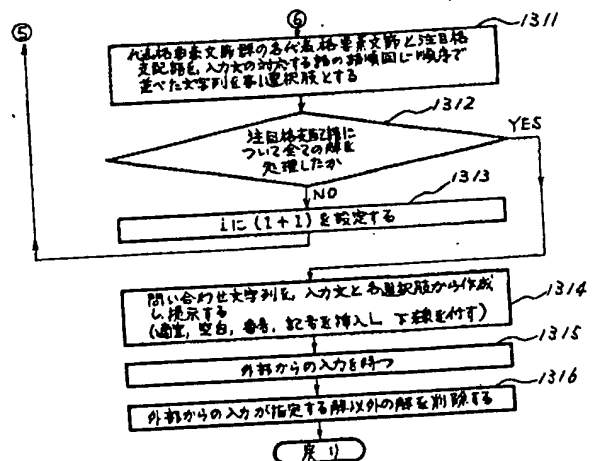 ⑤
⑥
1311
代表格要素文節群の各代表格要素文節と注目格
支配語を、入力文の対応する語の語順同じ順序で
並べた文字列を第i選択肢とする
1312
注目格支配語に
ついて全ての解を
処理したか
YES
NO
1313
iに(i+1)を設定する
1314
問い合わせ文字列を、入力文と各選択肢から作成
し提示する
(適宜,空白,番号,記号を挿入し下線を付す)
1315
外部からの入力を待つ
1316
外部からの入力が指定する解以外の解を削除する
戻り